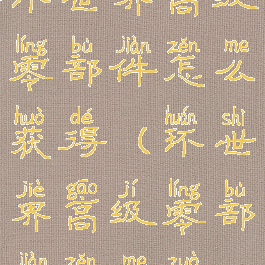 环世界高级
líng bù jiàn zěn me
零部件怎么
huò dé huán shì
获得（环世
jiè gāo jí líng bù
界高级零部
jiàn zěn me zuò